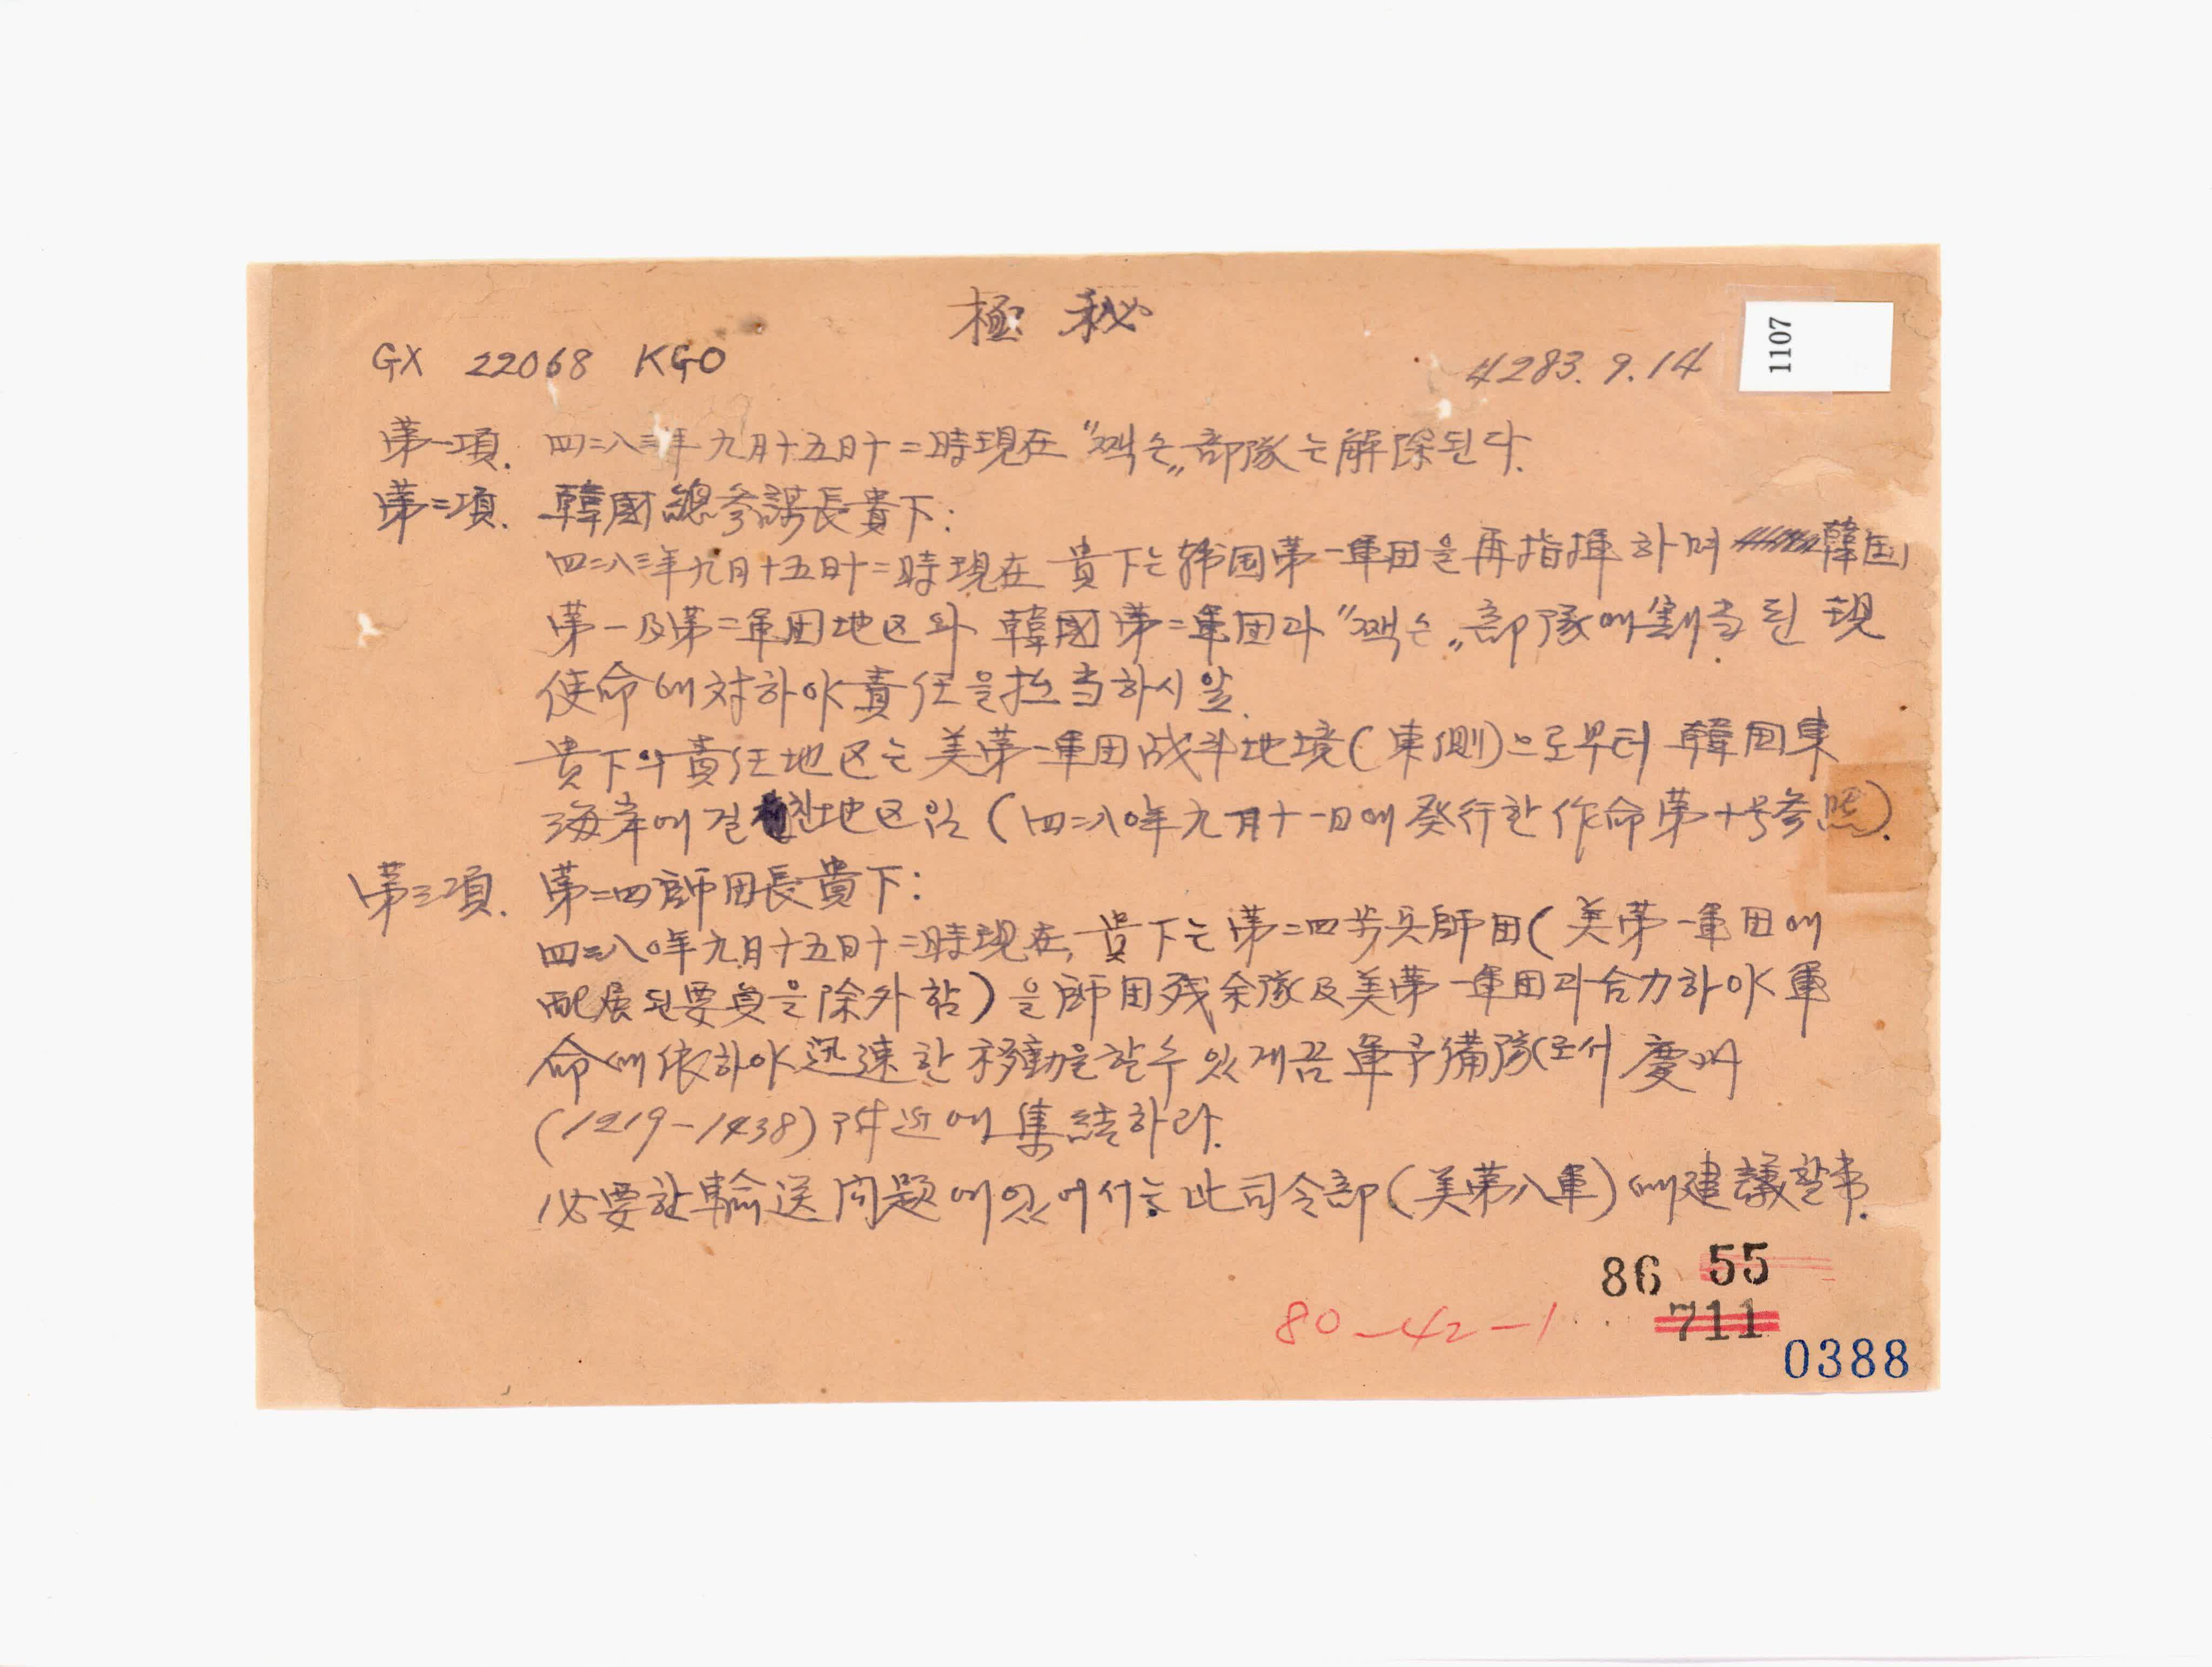 極秘
1107
GX 22068 KGO
4283. 9. 14
第一項. 四二八三年九月十五日十二時現在 "쨱슨„部隊는解除된다.
第二項. 韓國總参謀長貴下:
四二八三年九月十五日十二時現在 貴下는 韩国第一軍団을再指揮하며 韓国
第一及第二軍団地区와 韓國第二軍団과 "쨱슨„部隊에割当된 現
使命에対하야責任을担当하시앞.
貴下의責任地区는 美第一軍団战斗地境(東側)으로부터 韓国東
海岸에걸친地区임 (四二八○年九月十一日에發行한 作命第十号参照).
第三項. 第二四師団長貴下:
四二八○年九月十五日十二時現在, 貴下는 第二四步兵師団(美第一軍団에
配屬된要員을除外함)을師団残余隊及美第一軍団과合力하야軍
命에依하야迅速한移動을할수있게끔軍予備隊로서 慶州
(1219-1438)附近에集結하라.
必要한輸送问题에있어서는 此司令部(美第八軍)에建議할事.
86 55
80-42-1 711
0388